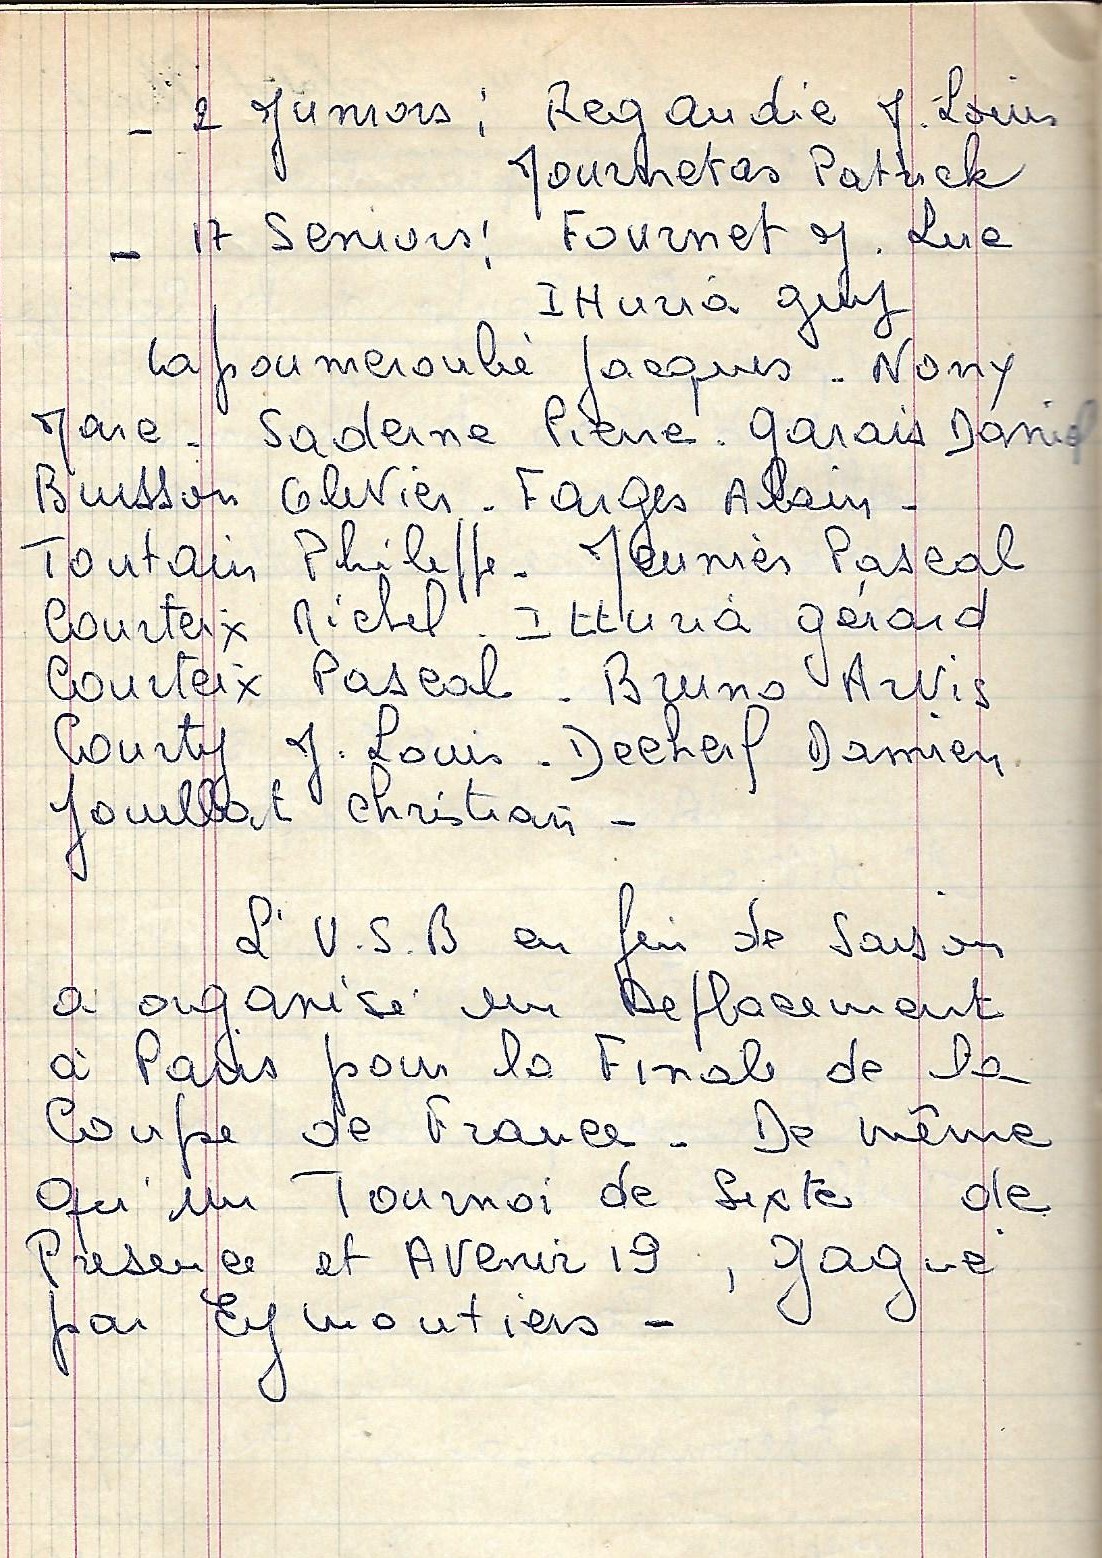 - 2 Juniors : Regaudie J. Louis
Journetas Patrick
- 17 Seniors : Fournet J. Luc
Ithuria guy
Lapoumeroulie Jacques - Nony
Marc - Saderne Pierre - garais Daniel
Buisson Olivier - Farges Alain -
Toutain Philippe - Meunier Pascal
Courteix Michel - Itturia gérard
Courteix Pascal - Bruno Arvis
Courty J. Louis - Decherf Damien
Jouillat christian -
L'U.S.B en fin de saison
a organisé un deplacement
à Paris pour la Final de la
Coupe de France - De même
qu'un Tournoi de Sixte de
Presence et Avenir 19, gagné
par Eymoutiers -